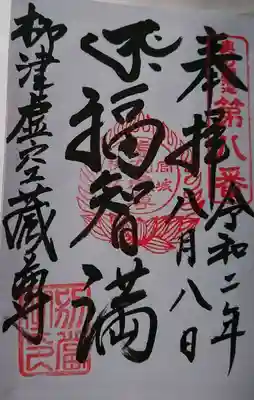 奉拝
第八番
令和二年
八月八日
福智満
柳津虚空蔵尊